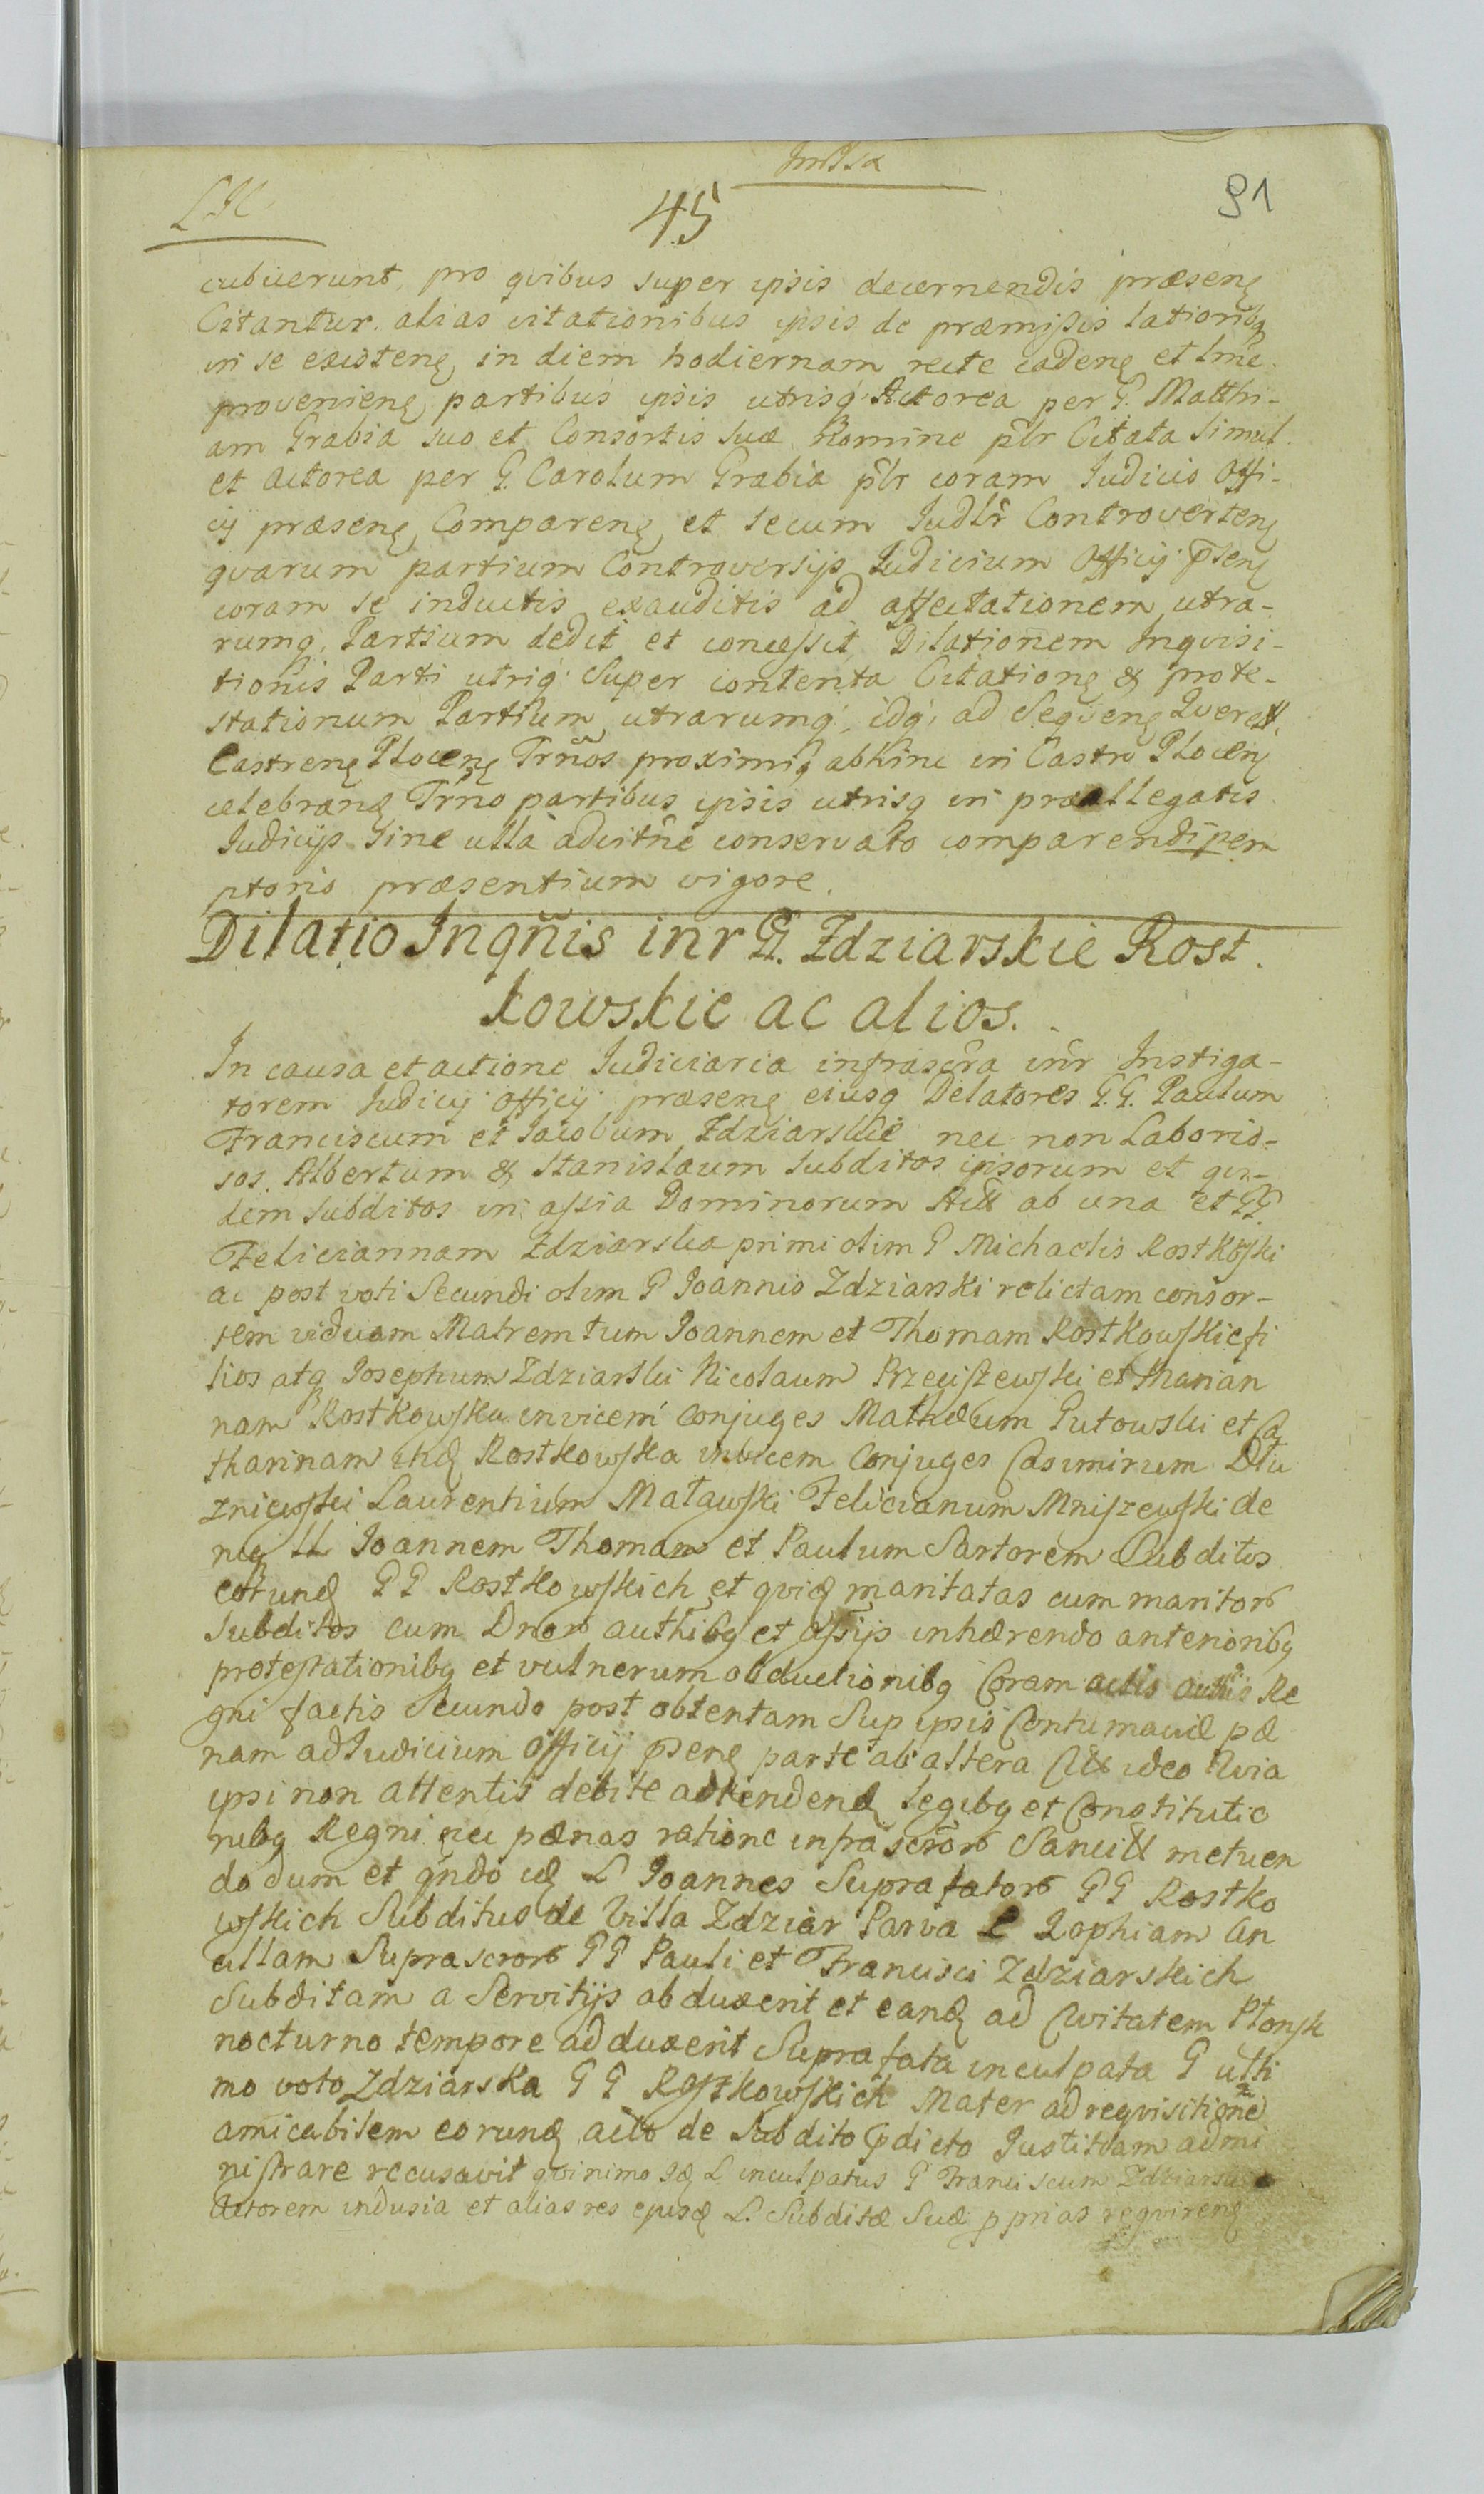 45
91
cubuerunt, pro qvibus super ipsis decernendis præsenȩ
Citantur. alias citationibus ipsis de præmissis lationibq
in se existenȩ, in diem hodiernam recte cadenȩ et lme
provenienȩ, partibus ipsis utrisq Actorea per G. Matthi-
am Grabia suo et Consortis suæ Nomine plr Citata simul
et actorea per G. Carolum Grabia plr coram Judicio Offi-
cij præsenȩ, Comparenȩ, et secum Judlr Controvertenȩ
qvarum partium Controversijs Judicium Officij p̄senȩ
coram se inductis, exauditis ad affectationem utra-
rumq, Partium dedit et concessit, Dilationem Inqvisi-
tionis Parti utriq Super contenta Citationȩ & prote-
stationum Partium, utrarumq, idq, ad Seqvenȩ Qverell.
Castrenȩ Plocenȩ Trños proximiq abhinc in Castro Plocenȩ
celebranȩ Trño partibus ipsis utrisq in præallegatis
Judicijs sine ulla adcitñe conservato comparendi perem
ptorio præsentium vigore.
Dilatio Inqñis inr G. Zdziarskie Rost.
kowskie ac alios.
In causa et actione Judiciaria infrascra inr Instiga-
torem Judicij Officij præsenȩ eiusq Delatores G.G. Paulum
Franciscum et Jacobum Zdziarskie nec non Laborio-
sos. Albertum & Stanislaum subditos ipsorum et qvi-
dem subditos in assia Dominorum Act ab una et GG
Feliciannam Zdziarska primi olim G Michaelis Rostkoski
ac post voti Secundi olim G Joannis Zdziarski relictam consor-
tem viduam Matrem tum Joannem et Thomam Rostkowskie fi
lios atq Josephum Zdziarski Nicolaum Przeciszewski et Marian
nam Rostkowska invicem conjuges Mathæum Gutowski et Ca
tharinam itidȩ Rostkowska invicem Conjuges Casimirum Dłu
zniewski Laurentium Maławski Felicianum Mniszewski de
niq LL Joannem Thomam et Paulum Sartorem Subditos
eorundȩ GG Rostkowskich et qvidȩ maritatas cum maritorȩ
Subditos cum Dnorȩ authibq et assijs inhærendo anterioribq
protestationibq et vulnerum obductionibq Coram actis authis Re
gni factis Secundo post obtentam Sup ipsis Contumaciæ pæ
nam ad Judicium Officij p̄senȩ parte ab altera Citt ideo Qvia
ipsi non attentis debite attendendȩ legibq et Constitutio
nibq Regni nec pænas ratione infrascrorȩ Sancitt metuen
do dum et qndo idȩ L Joannes Suprafatorȩ GG Rostko
wskich Subditus de Villa Zdziar Parva L Zophiam an
cillam Suprascrorȩ GG Pauli et Francisci Zdziarskich
Subditam a Servitijs abduxerit et eandȩ ad Civitatem Płonsk
nocturno tempore adduxerit Suprafata inculpata G ulti
mo voto Zdziarska GG Rostkowskich Mater ad reqvisitionē
amicabilem eorundȩ actō de Subdito p̄dicto Justitiam admi
nistrare recusavit qvinimo Idȩ L inculpatus G Franciscum Zdziarski
Actorem indusia et alias res ejusdȩ L. Subditæ Suæ pprias reqvirenȩ